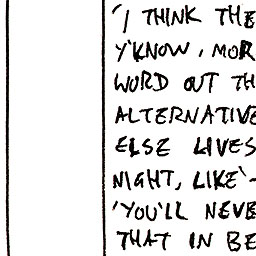 'I THINK THE
Y'KNOW, MOR
WORD OUT TH
ALTERNATIVE
ELSE LIVES
NIGHT, LIKE'-
'YOU'LL NEVE
THAT IN BE